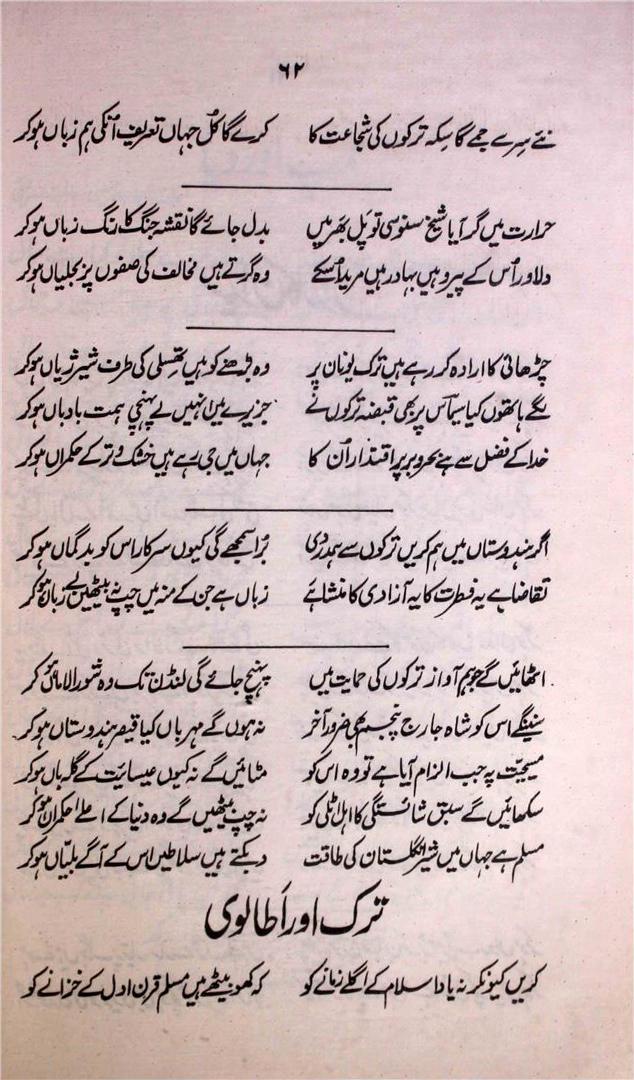 ۶۲
نئے سِرے جمے گا سِکہ ترکوں کی شجاعت کا کرے گا کُل جہاں تعریف اُنکی ہم زباں ہوکر
حرارت میں گر آیا شیخ سنوسی تو پَل بھر میں بدل جائے گا نقشہ جنگ کا رنگ زباں ہوکر
دلاور اُس کے پیرو ہیں بہادر ہیں مرید اُسکے وہ گرتے ہیں مخالف کی صفوں پر بجلیاں ہوکر
چڑھائی کا ارادہ کر رہے ہیں ترک یونان پر وہ بڑھنے کو ہیں تھسلی کی طرف شیر ژیاں ہوکر
لگے ہاتھوں کیا سیآس پر بھی قبضہ ترکوں نے جزیرے میں انہیں لے پہنچی ہمت بادباں ہوکر
خدا کے فضل سے ہے بحر و بر پر اقتدار اُن کا جہاں میں جی رہے ہیں خشک و تر کے حکمراں ہوکر
اگر ہندوستاں میں ہم کریں ترکوں سے ہمدردی بُرا سمجھے گی کیوں سرکار اس کو بدگماں ہوکر
تقاضا ہے یہ فطرت کا یہ آزادی کا منشا ہے زباں ہے جن کے منہ میں چپ نہ بیٹھیں بے زباں ہوکر
اٹھائیں گے جو ہم آواز ترکوں کی حمایت میں پہنچ جائے گی لنڈن تک وہ شورالاماں ہوکر
سنینگے اس کو شاہ جارج پنجم بھی ضرور آخر نہ ہوں گے مہرباں کیا قیصر ہندوستاں ہوکر
مسیحیّت پہ جب الزام آیا ہے تو وہ اس کو مٹائیں گے نہ کیوں عیسائیت کے گلہ باں ہوکر
سکھائیں گے سبق شائستگی کا اہل اٹلی کو نہ چپ بیٹھیں گے وہ دنیا کے اعلےٰ حکمراں ہوکر
مسلم ہے جہاں میں شیر انگلستان کی طاقت دبکتے ہیں سلاطیں اس کے آگے بلیّاں ہوکر
ترک اور اَطالوی
کریں کیونکر نہ یاد اسلام کے اگلے زمانے کو کہ کھو بیٹھے ہیں مسلم قرن اول کے خزانے کو